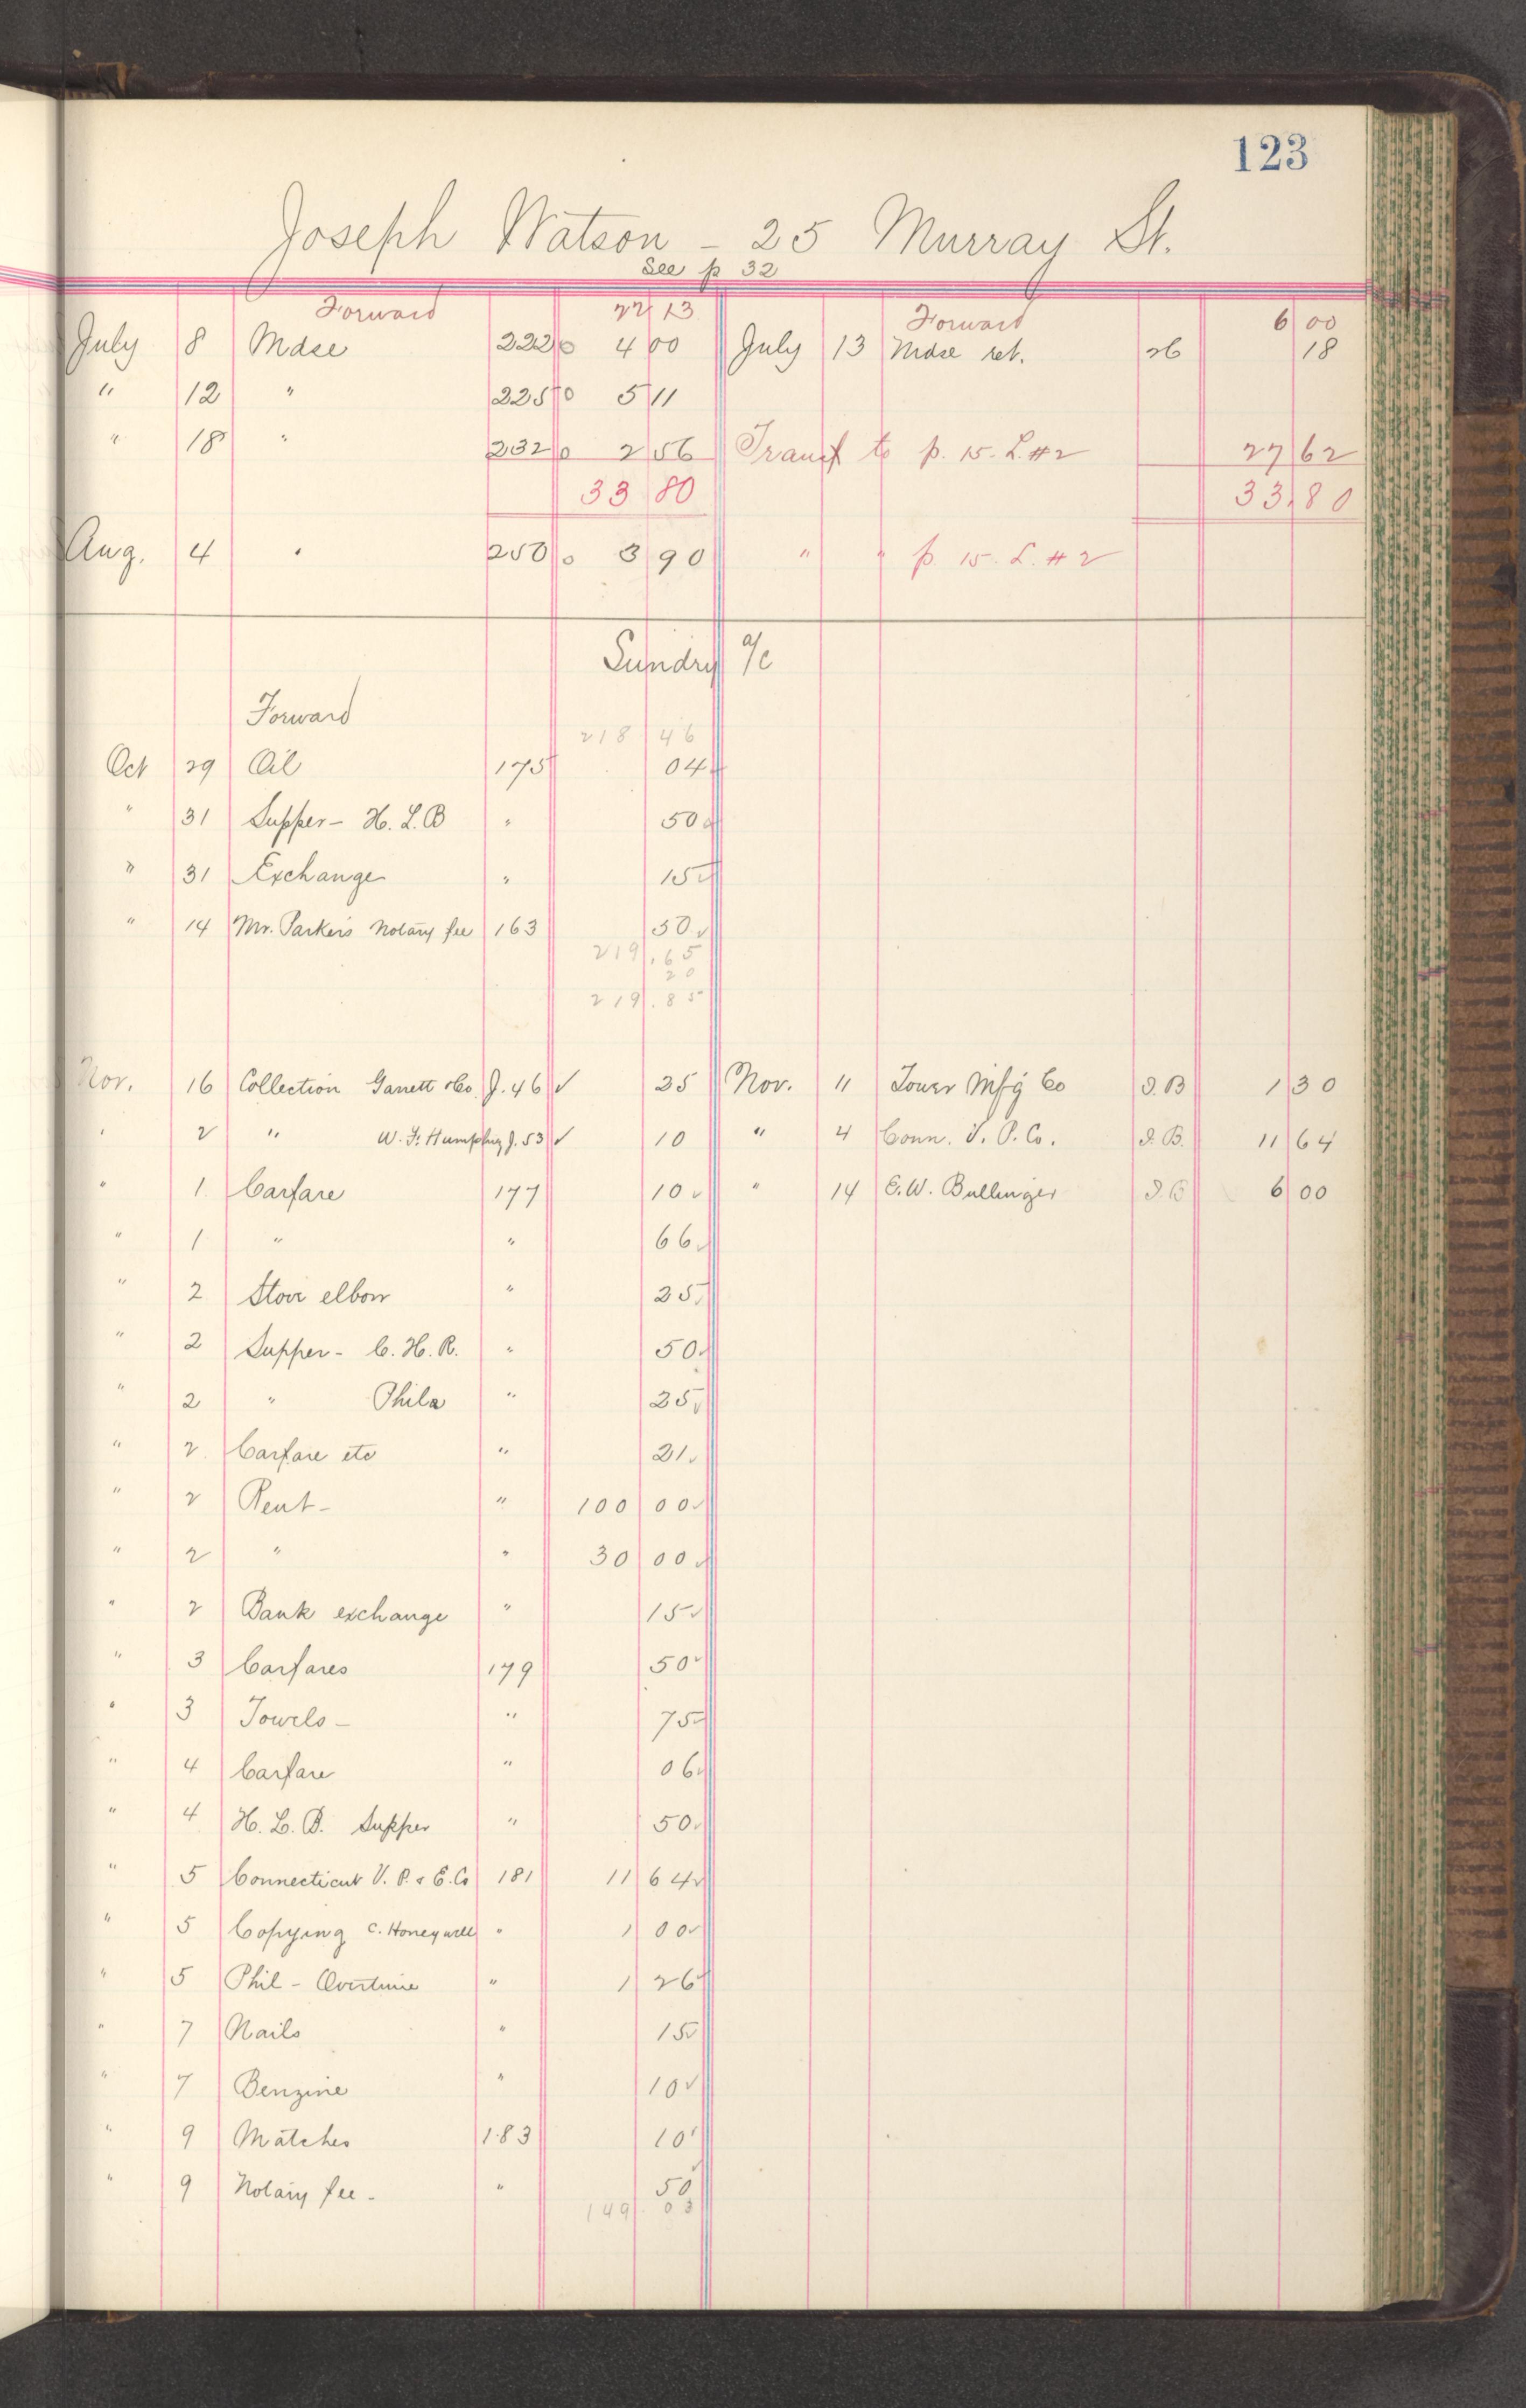 123
Joseph Watson - 25 Murray St.
See p 32
Forward 22 13 Forward 6 00
July 8 Mdse 222 0 4 00 July 13 Mdse ret. 26 18
" 12 " 225 0 5 11
" 18 " 232 0 2 56 Transf to p. 15. L. #2 27 62
33 80 33.80
Aug. 4 " 250 0 3 90 " " p. 15. L. #2
Sundry a/c
Forward 218 46
Oct 29 Oil 175 04 ✓
" 31 Supper - H. L. B " 50 ✓
" 31 Exchange " 15 ✓
" 14 Mr. Parker's Notary fee 163 50 ✓
219.65
20
219.85
Nov. 16 Collection Garrett & Co J. 46 ✓ 25 Nov. 11 Tower Mfg Co I.B 1 30
" 2 " W. F. Humphrey J. 53 ✓ 10 " 4 Conn. V. P. Co. I.B. 11 64
" 1 Carfare 177 10 ✓ " 14 E. W. Bullinger I.B 6 00
" 1 " " 66 ✓
" 2 Stove elbow " 25 ✓
" 2 Supper - C. H. R. " 50 ✓
" 2 " Phila " 25 ✓
" 2 Carfare etc " 21 ✓
" 2 Rent - " 100 00 ✓
" 2 " " 30 00 ✓
" 2 Bank exchange " 15 ✓
" 3 Carfares 179 50 ✓
" 3 Towels - " 75 ✓
" 4 Carfare " 06 ✓
" 4 H. L. B. Supper " 50 ✓
" 5 Connecticut V. P. & E. Co 181 11 64 ✓
" 5 Copying C. Honeywell " 1 00 ✓
" 5 Phil - Overtime " 1 26 ✓
" 7 Nails " 15 ✓
" 7 Benzine " 10 ✓
" 9 Matches 183 10 ✓
" 9 Notary fee - " 50 ✓
149.03